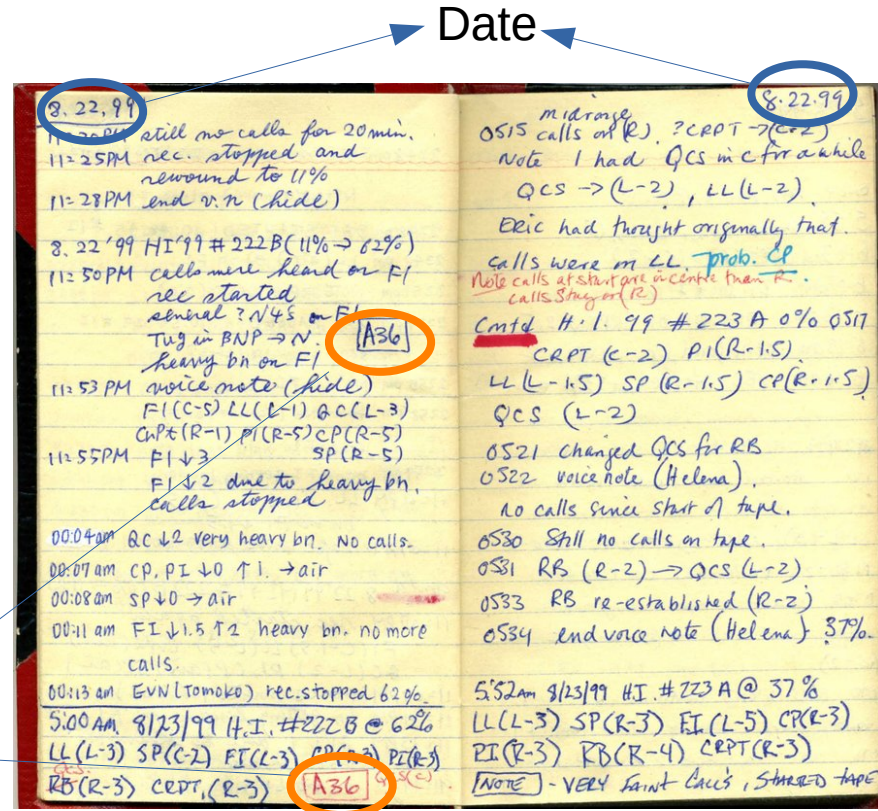 Date
8.22,99
still no calls for 20 min.
11:25PM rec. stopped and
rewound to 11%
11:28PM end v.n (hide)
8.22'99 HI'99 # 222B (11% → 62%)
11:50PM calls were heard on FI
rec started
several ? N4S on FI
Tug in BNP → N.
A36
heavy bn on FI
11:53 PM voice note (hide)
FI(C-5) LL(L-1) QC(L-3)
CRPt(R-1) PI(R-5) CP(R-5)
SP(R-5)
11:55PM FI↓3
FI↓2 due to heavy bn.
calls stopped
00:04am QC↓2 very heavy bn. No calls.
00:07am CP, PI ↓0 ↑1. → air
00:08am SP↓0 → air
00:11 am FI↓1.5 ↑2 heavy bn. no more
calls.
00:13 am EVN (Tomoko) rec.stopped 62%
5:00 AM. 8/23/99 H.I. #222B @ 62%
LL(L-3) SP(C-2) FI(L-3) CP(R-3) PI(R-3)
RB(R-3) CRPT,(R-3) A36 QCS(C)
8.22.99
midrange
0515 calls on (R). ?CRPT → (C-2)
Note I had QCS in C for a while
QCS → (L-2), LL(L-2)
ERIC had thought originally that
calls were on LL. prob. CP
Note calls at start are in centre than R.
calls stay on (R)
Contd H.I. 99 #223A 0% 0517
CRPT (C-2) PI(R-1.5)
LL(L-1.5) SP(R-1.5) CP(R-1.5)
QCS (L-2)
0521 changed QCS for RB
0522 voice note (Helena).
no calls since start of tape.
0530 Still no calls on tape.
0531 RB (R-2) → QCS (L-2)
0533 RB re-established (R-2)
0534 end voice note (Helena) 37%.
5:52am 8/23/99 H.I. #223A @ 37%
LL(L-3) SP(R-3) FI(L-5) CP(R-3)
PI(R-3) RB(R-4) CRPT(R-3)
NOTE - VERY FAINT CALLS, STARTED TAPE